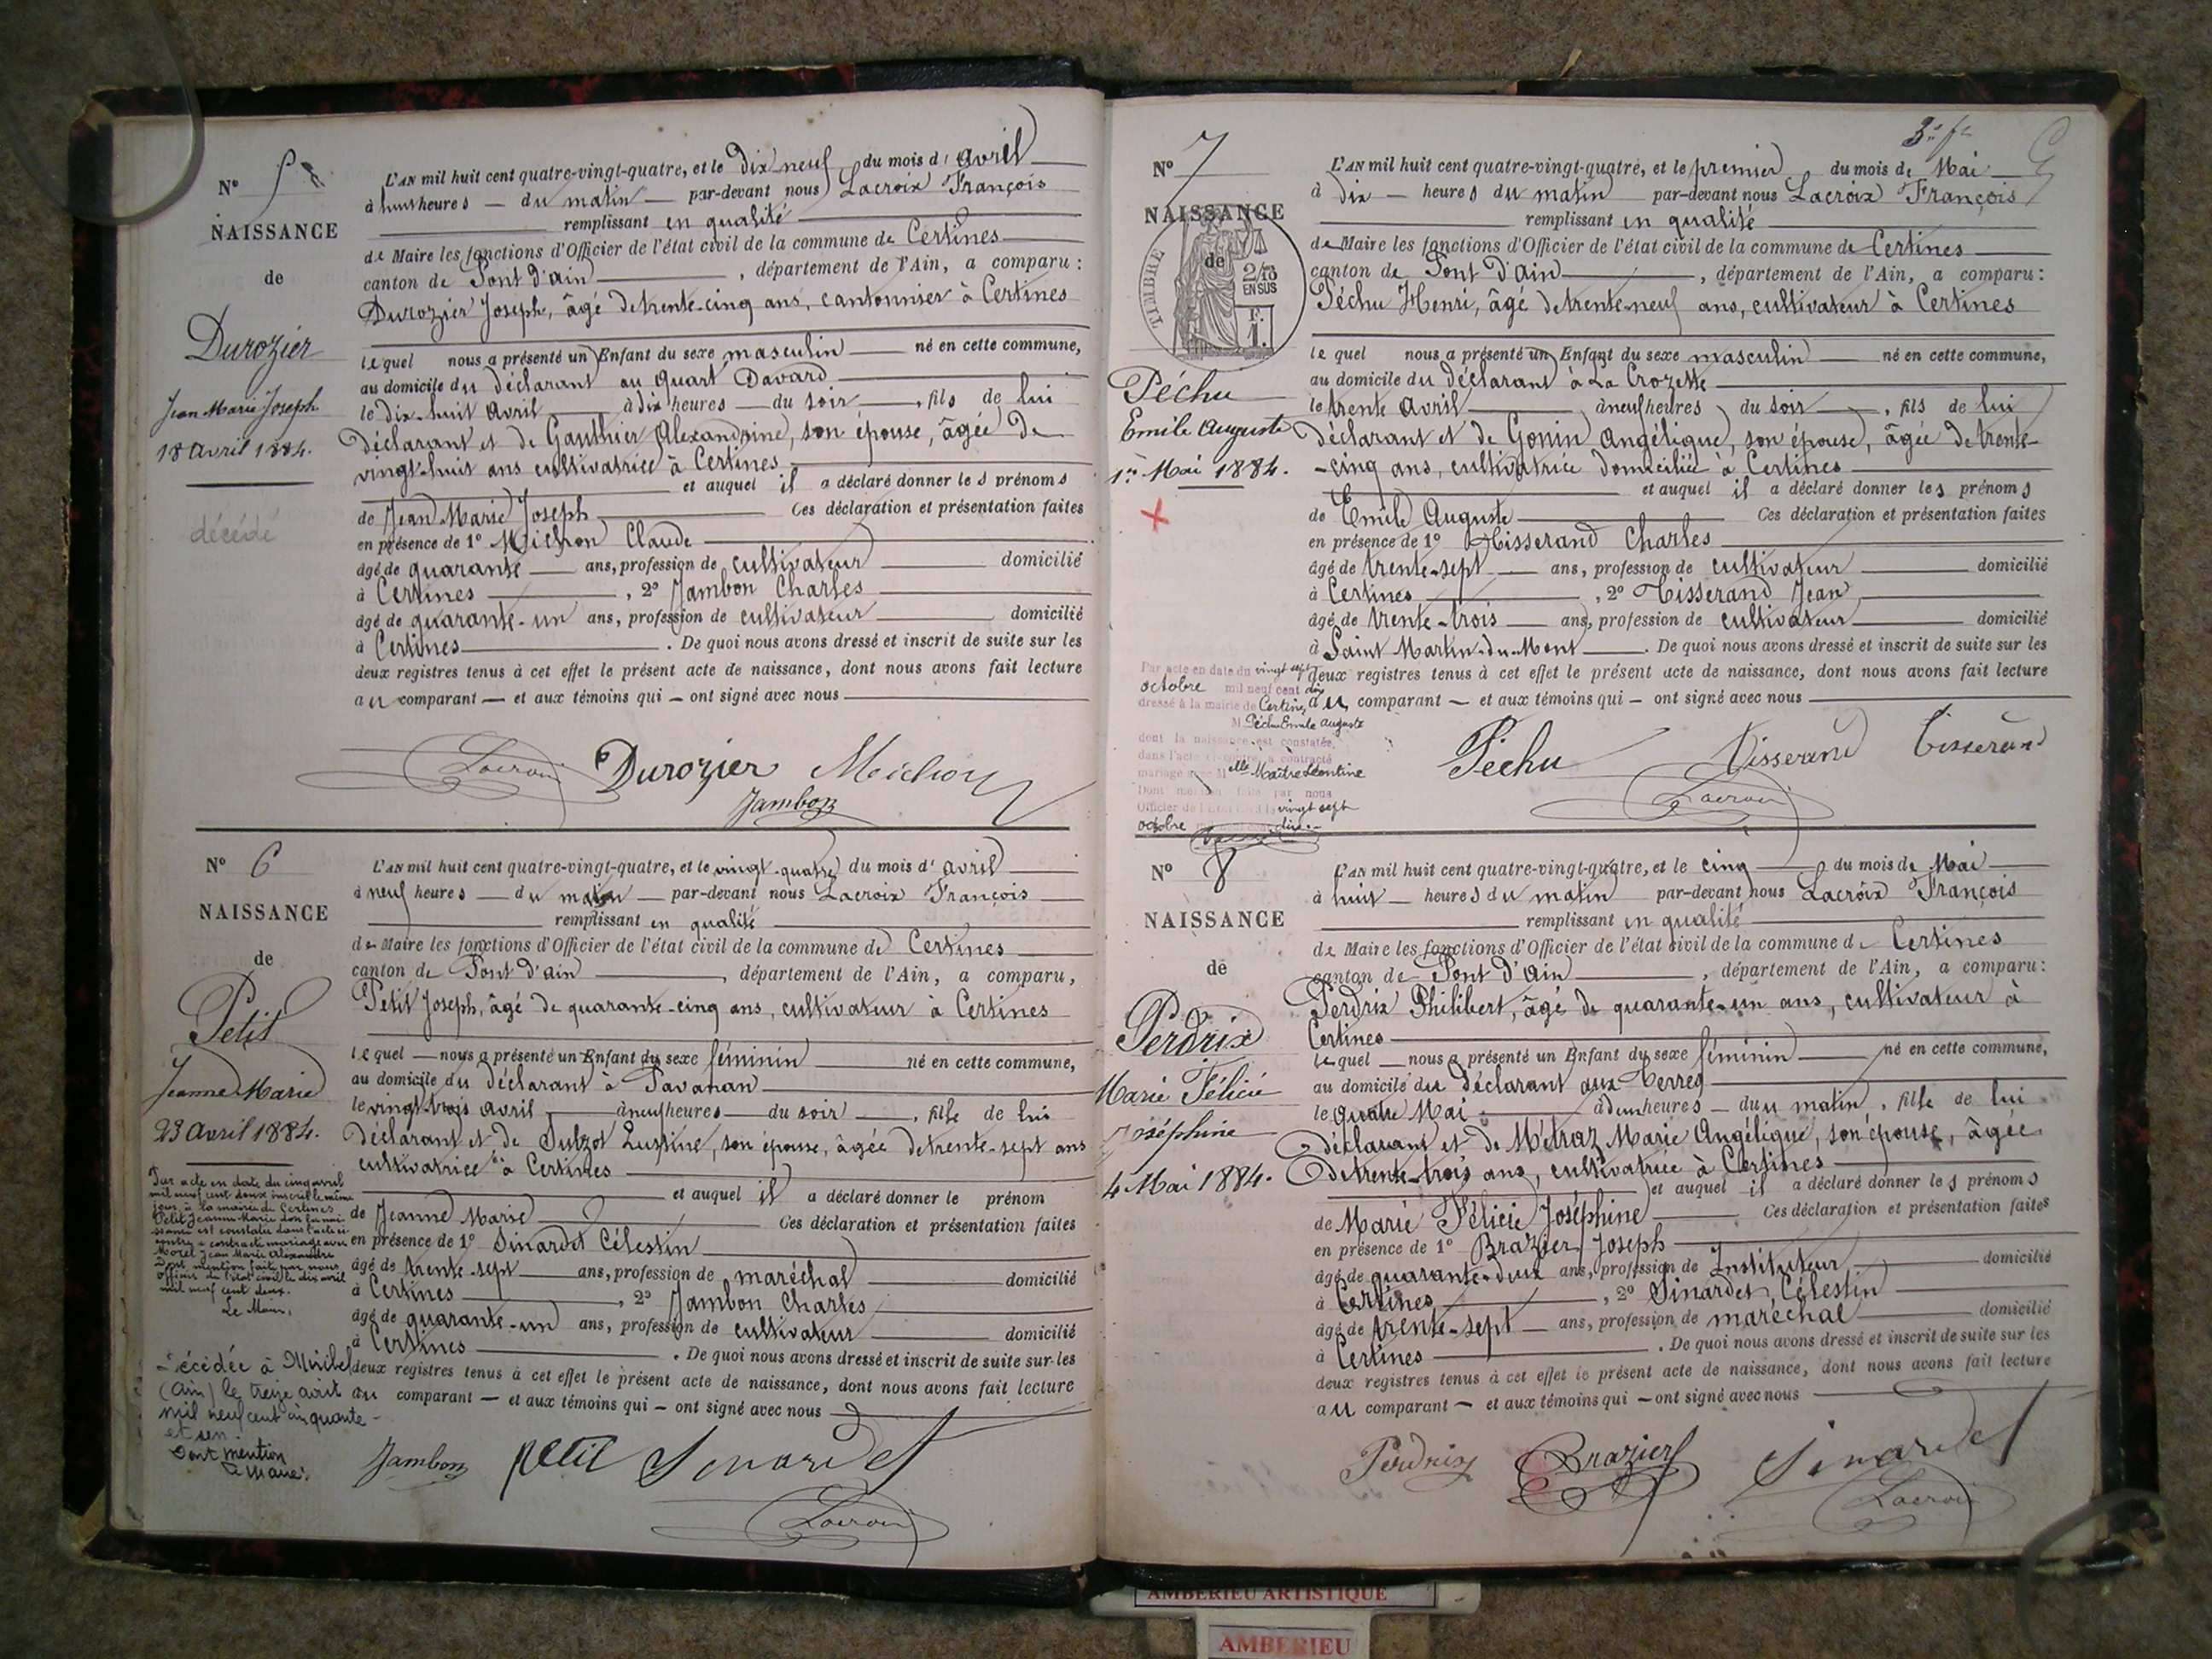 N° 5
NAISSANCE
de
Durozier
Jean Marie Joseph
18 avril 1884.
décédé
L'AN mil huit cent quatre-vingt-quatre, et le dix neuf du mois d'avril
à huit heures — du matin — par-devant nous Lacroix François
remplissant en qualité
de Maire les fonctions d'Officier de l'état civil de la commune de Certines
canton de Pont d'ain, département de l'Ain, a comparu :
Durozier Joseph, âgé de trente-cinq ans, cantonnier à Certines
lequel nous a présenté un Enfant du sexe masculin — né en cette commune,
au domicile du déclarant au quart Davard
le dix-huit avril — à dix heures — du soir —, fils de lui
déclarant et de Gauthier Alexandrine, son épouse, âgée de
vingt-huit ans cultivatrice à Certines
et auquel il a déclaré donner les prénoms
de Jean Marie Joseph — Ces déclaration et présentation faites
en présence de 1° Michon Claude
âgé de quarante — ans, profession de cultivateur — domicilié
à Certines —, 2° Jambon Charles
âgé de quarante-un ans, profession de cultivateur — domicilié
à Certines — . De quoi nous avons dressé et inscrit de suite sur les
deux registres tenus à cet effet le présent acte de naissance, dont nous avons fait lecture
au comparant — et aux témoins qui — ont signé avec nous
Lacroix Durozier Michon
Jambon
N° 6
NAISSANCE
de
Petit
Jeanne Marie
23 avril 1884.
Par acte en date du cinq avril
mil neuf cent deux inscrit le même
jour à la mairie de Certines
Petit Jeanne Marie dont la nais-
sance est constatée dans l'acte ci-
contre a contracté mariage avec
Morel Jean Marie Alexandre
Dont mention faite par nous
officier de l'état civil le dix avril
mil neuf cent deux.
Le Maire,
Décédée à Miribel
(Ain) le treize avril
mil neuf cent cinquante-
et un.
Dont mention
Le Maire.
L'AN mil huit cent quatre-vingt-quatre, et le vingt-quatre du mois d'avril
à neuf heures — du matin — par-devant nous Lacroix François
remplissant en qualité
de Maire les fonctions d'Officier de l'état civil de la commune de Certines
canton de Pont d'ain —, département de l'Ain, a comparu,
Petit Joseph, âgé de quarante-cinq ans, cultivateur à Certines
lequel — nous a présenté un Enfant du sexe féminin — né en cette commune,
au domicile du déclarant à Pavanan
le vingt-trois avril — à neuf heures — du soir —, fille de lui
déclarant et de son épouse, âgée de trente-sept ans
cultivatrice à Certines
et auquel il a déclaré donner le prénom
de Jeanne Marie — Ces déclaration et présentation faites
en présence de 1° Sinardet Célestin
âgé de trente-sept — ans, profession de maréchal — domicilié
à Certines —, 2° Jambon Charles
âgé de quarante-un ans, profession de cultivateur — domicilié
à Certines — . De quoi nous avons dressé et inscrit de suite sur les
deux registres tenus à cet effet le présent acte de naissance, dont nous avons fait lecture
au comparant — et aux témoins qui — ont signé avec nous
Jambon petit Sinardet
Lacroix
3e fe
N° 7
NAISSANCE
de
TIMBRE
2/10 EN SUS
F. 1.
Péchu
Emile Auguste
1er Mai 1884.
Par acte en date du vingt sept
octobre mil neuf cent dix
dressé à la mairie de Certines
M. Péchu Emile Auguste
dont la naissance est constatée
dans l'acte ci-contre, a contracté
mariage avec Melle Maître Léontine
Dont mention faite par nous
Officier de l'Etat civil le vingt sept
octobre dix.
L'AN mil huit cent quatre-vingt-quatre, et le premier du mois de Mai
à dix — heures du matin par-devant nous Lacroix François
remplissant en qualité
de Maire les fonctions d'Officier de l'état civil de la commune de Certines
canton de Pont d'ain —, département de l'Ain, a comparu :
Péchu Henri, âgé de trente-neuf ans, cultivateur à Certines
lequel nous a présenté un Enfant du sexe masculin — né en cette commune,
au domicile du déclarant à La Crozette
le trente avril — à neuf heures du soir —, fils de lui
déclarant et de Gonin Angélique, son épouse, âgée de trente-
-cinq ans, cultivatrice domiciliée à Certines
et auquel il a déclaré donner les prénoms
de Emile Auguste — Ces déclaration et présentation faites
en présence de 1° Tisserand Charles
âgé de trente-sept — ans, profession de cultivateur — domicilié
à Certines —, 2° Tisserand Jean
âgé de trente-trois — ans, profession de cultivateur — domicilié
à Saint Martin-du-Mont — . De quoi nous avons dressé et inscrit de suite sur les
deux registres tenus à cet effet le présent acte de naissance, dont nous avons fait lecture
au comparant — et aux témoins qui — ont signé avec nous
Péchu Tisserand Tisserand
Lacroix
N° 8
NAISSANCE
de
Perdrix
Marie Félicie
Joséphine
4 Mai 1884.
L'AN mil huit cent quatre-vingt-quatre, et le cinq — du mois de Mai
à huit — heures du matin par-devant nous Lacroix François
remplissant en qualité
de Maire les fonctions d'Officier de l'état civil de la commune de Certines
canton de Pont d'Ain —, département de l'Ain, a comparu :
Perdrix Philibert, âgé de quarante-un ans, cultivateur à
Certines
lequel — nous a présenté un Enfant du sexe féminin — né en cette commune,
au domicile du déclarant aux
le quatre Mai — heures — du matin, fille de lui
déclarant et de Métraz Marie Angélique, son épouse, âgée
de trente-trois ans, cultivatrice à Certines
et auquel il a déclaré donner les prénoms
de Marie Félicie Joséphine — Ces déclaration et présentation faites
en présence de 1° Brazier Joseph
âgé de quarante-deux ans, profession de Instituteur — domicilié
à Certines —, 2° Sinardet Célestin
âgé de trente-sept — ans, profession de maréchal — domicilié
à Certines — . De quoi nous avons dressé et inscrit de suite sur les
deux registres tenus à cet effet le présent acte de naissance, dont nous avons fait lecture
au comparant — et aux témoins qui — ont signé avec nous
Perdrix Brazier Sinardet
Lacroix
AMBERIEU ARTISTIQUE
AMBERIEU